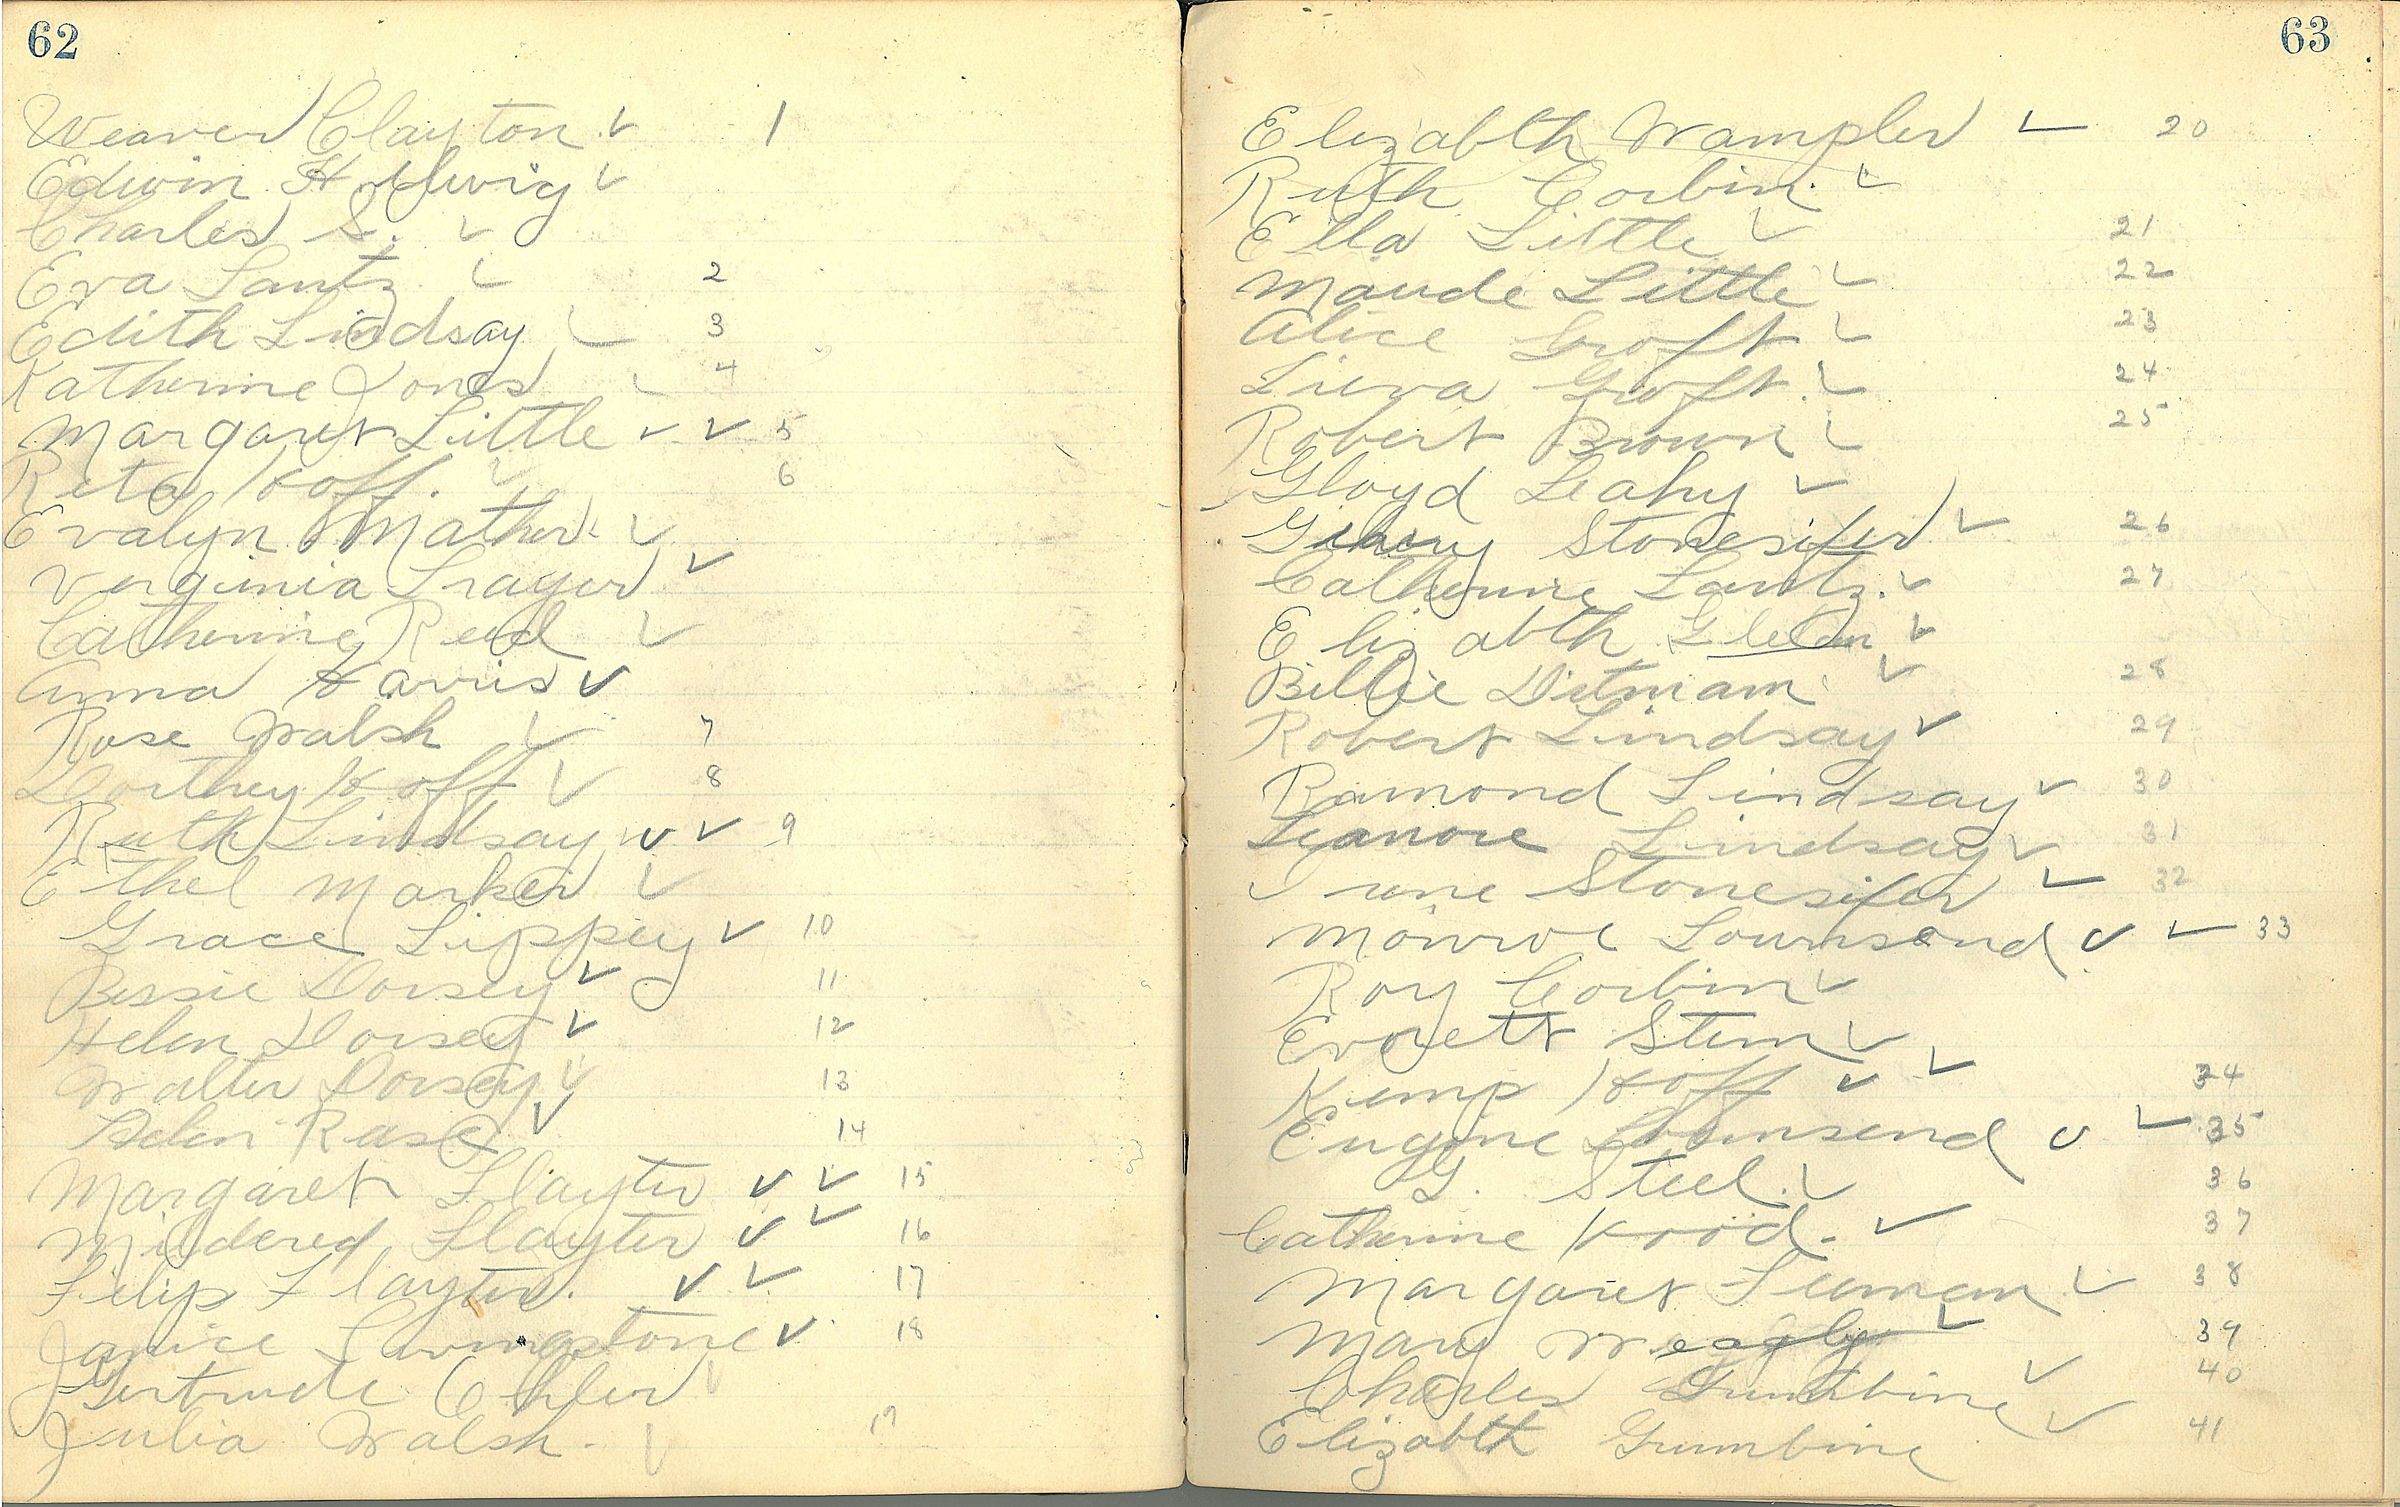 62
Weaver Clayton ✓ 1
Edwin Hellwig ✓
Charles S. ✓
Eva Lantz ✓ 2
Edith Lindsay ✓ 3
Katherine Jones ✓ 4
Margaret Little ✓ ✓ 5
Reta Koff. ✓ 6
Evalyn Mather ✓
Verginia Trayer ✓
Catherine Reed ✓
Anna Harris ✓
Rose Walsh ✓ 7
Dorthey Hoff ✓ 8
Ruth Lindsay ✓ ✓ 9
Ethel Marker ✓
Grace Lippey ✓ 10
Bessie Dorsey ✓ 11
Helen Dorsey ✓ 12
Walter Dorsey ✓ 13
Helen Rase ✓ 14
Margaret Flayter ✓ ✓ 15
Mildered Flayter ✓ ✓ 16
Filip Flayter. ✓ ✓ 17
Janice Livingstone ✓ 18
Gertrude Ehler ✓
Julia Walsh. ✓ 19
63
Elizabth Wampler ✓ 20
Ruth Corbin. ✓
Ella Little ✓ 21
Maude Little ✓ 22
Alice Groft ✓ 23
Lieva Groft. ✓ 24
Robert Brown ✓ 25
Gloyd Leahy ✓
Stonesifer ✓ 26
Catherine Lantz. ✓ 27
Elizabth ✓
Billie Ditmam ✓ 28
Robert Lindsay ✓ 29
Ramond Lindsay ✓ 30
Leanore Lindsay ✓ 31
✓ une Stonesifer ✓ 32
Monroe Townsend ✓ ✓ 33
Roy Corbin ✓
Everett Stem ✓
Kemp Hoff ✓ ✓ 34
Eugene Townsend ✓ ✓ 35
G. Steel. ✓ 36
Catherine Kood. ✓ 37
Margaret Leeman ✓ 38
Mary Weagly ✓ 39
Charles Gumbine ✓ 40
Elizabth Gumbine ✓ 41